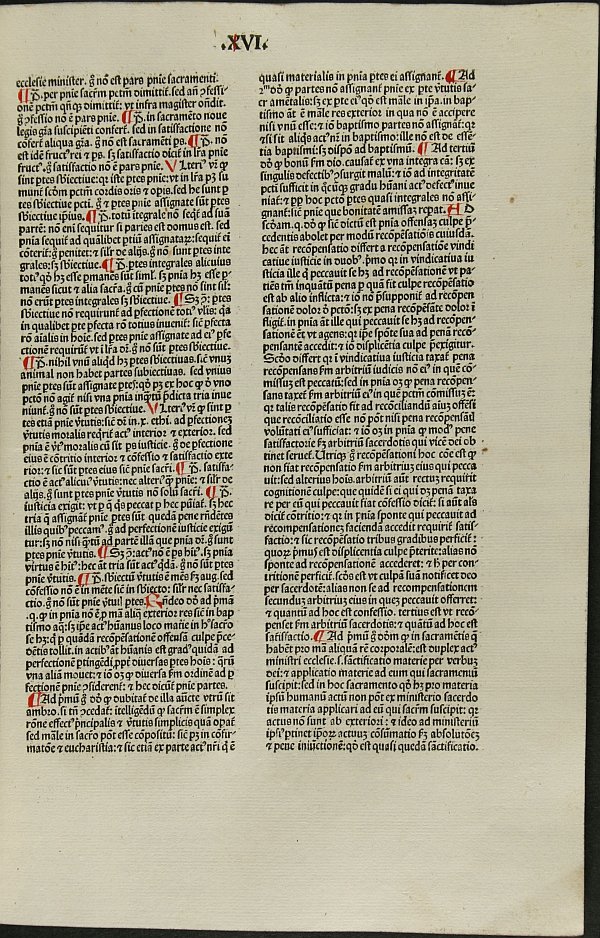 .XVI.
ecclesie minister. g̃ nõ est pars pñie sacramenti.
¶ P̃. per pñie sacr̃m pctm̃ dimittit̃. sed añ ꝯfessi-
onẽ pctm̃ dimittit̃: vt infra magister oñdit.
g̃ ꝯfessio nõ ẽ pars pñie. ¶ P̃. in sacramẽto noue
legis gr̃a suscipiẽti confert̃. sed in satisfactione nõ
cõfert̃ aliqua gr̃a. g̃ nõ est sacramẽti ps. ¶ P̃. nõ
est idẽ fructꝰ rei ⁊ ps. sz satisfactio dicit̃ in lr̃a pñie
fructꝰ. g̃ satisfactio nõ ẽ pars pñie. Vlteriꝰ vr̃ ꝙ
sint ptes sb̃iectiue: qꝛ iste ptes pñie: vt in lr̃a pꝫ su
munt̃ scðm pctm̃ cordis oris ⁊ opis. sed he sunt p
tes sb̃iectiue pcti. g̃ ⁊ ptes pñie assignate sũt ptes
sb̃iectiue ipsius. ¶ P̃. totũ itegrale nõ seqt̃ ad suã
partẽ: nõ eni sequit̃ si paries est domus est. sed
pñia sequit̃ ad qualibet ptiũ assignatarꝝ: sequit̃ ei
cõterit̃: g̃ penitet: ⁊ silr̃ de alijs. g̃ nõ sunt ptes inte
grales: sꝫ sb̃iectiue. ¶ P̃. ptes integrales alicuius
totiꝰ nõ hñt esse pmanẽs sũt siml̃. sꝫ pñia hꝫ esse p-
manẽs sicut ⁊ alia sacr̃a. g̃ cũ ptes pñie nõ sint sil:
nõ erũt ptes integrales sꝫ sb̃iectiue. ¶ Sꝫ ꝯ̃: ptes
sb̃iectiue nõ requirunt̃ ad ꝑfectionẽ totiꝰ vlis. qa
in qualibet pte ꝑfecta rõ totius inuenit̃: sic ꝑfecta
rõ aialis in hoie. sed ptes pñie assignate ad eiꝰ ꝑfe-
ctionẽ requirũt̃ vt i lr̃a dr̃. g̃ nõ sũt ptes sb̃iectiue.
¶ P̃. nihil vnũ aliqd̃ hꝫ ptes sb̃iectiuas: sic vnuꝫ
animal non habet partes subiectiuas. sed vnius
pñie ptes sũt assignate
pctõ nõ agit̃ nisi vna pñia inqͫtũ p̃dicta tria inue
niunt̃. g̃ nõ sũt ptes sb̃iectiue. Vlteriꝰ vr̃ ꝙ sint p
tes etiã pñie v̓tutis: sic em̃ in .x. ethi. ad ꝑfectionẽ
v̓tutis moralis reqrit̃ actꝰ interior ⁊ exterior. sed
pñia ẽ v̓tꝰ moralis cũ sit ps iusticie. g̃ de ꝑfectione
eius ẽ cõtritio interior ⁊ cõfessio ⁊ satisfactio exte
rior: ⁊ sic sũt ptes eius sic pñie sacri. ¶ P̃. satisfa-
ctio ẽ actꝰ alicuiꝰ v̓tutis: nec alterꝰ ꝙ̃ pñie: ⁊ silr̃ de
alijs. g̃ sunt ptes pñie v̓tutis nõ solũ sacri. ¶ P̃.
iusticia exigit: vt p q̃ qs peccat p hec puniat̃. sꝫ hec
tria q̃ assignãt̃ pñie ptes sũt quedã pene rñdẽtes
illis quibꝰ peccam̃ꝰ. g̃ ad perfectionẽ iusticie exigũ
tur: sꝫ nõ nisi qͫtũ ad partẽ illã que pñia dr̃. g̃ sunt
ptes pñie v̓tutis. ¶ Sꝫ ꝯ̃: actꝰ nõ ẽ ps hitꝰ. sꝫ pñia
virtus ẽ hitꝰ: hec aũt tria sũt actꝰ qdã. g̃ nõ sũt ptes
pñie v̓tutis. ¶ P̃. sb̃iectũ v̓tutis ẽ mẽs fm̃ aug. sed
cõfessio nõ ẽ in mẽte sic in sb̃iecto: silr̃ nec satisfa-
ctio. g̃ nõ sũt pñie v̓tutis ptes. Rñdeo dõ ad p̃mã
.q. ꝙ in pñia nõ ẽ p mã aliq̃ exterior res sic in bap
tismo aq̃: sꝫ ipse actꝰ hũanus loco materie in hͦ sacro
se hꝫ: q̃ p quandã recõpẽsationẽ offensa culpe p̃ce-
dẽtis tollit̃. in actibꝰ aũt hũanis est gradꝰ quidã ad
perfectionẽ ptingẽdi ppt̃ diuersas ptes hois: qꝛũ
vna aliã mouet: ⁊ iõ oꝫ ꝙ diuersa fm̃ ordinẽ ad ꝑ
fectionẽ pñie ꝯsiderent̃: ⁊ hec dicũt̃ pñie partes.
¶ Ad p̃mũ g̃ dõ ꝙ dubitat̃ de illa aũcte vtrũ sit
ambro. si tñ ꝯcedat̃: itelligẽdũ ꝙ sacr̃m ẽ simplex
rõne effectꝰ p̃ncipalis ⁊ v̓tutis simplicis quã oꝑat̃
sed mãle in sacro põt esse cõpositũ: sic pꝫ in cõfir-
matõe ⁊ eucharistia: ⁊ sic etiã ex parte actꝰ nr̃i q̃ ẽ
quasi materialis in pñia ptes ei assignant̃. ¶ Ad
2ᵐ dõ ꝙ partes nõ assignant̃ pñie ex pte v̓tutis sa-
cramẽtalis: sꝫ ex pte eiꝰ qð est mãle in ipa. in bap-
tismo aũt ẽ mãle res exterior in qua nõ ẽ accipere
nisi vnũ esse: ⁊ iõ baptismo partes nõ assignãt̃: qꝛ
⁊ si sit aliqs actꝰ nr̃ in baptismo: ille nõ est de essẽ-
tia baptismi: sꝫ dispõ ad baptismũ. ¶ Ad tertiũ
dõ ꝙ bonũ fm̃ dio. causat̃ ex vna integra cã: sꝫ ex
singulis defectibꝰ ꝯsurgit malũ: ⁊ iõ ad integritatẽ
pcti sufficit in qcũqꝫ gradu hũani actꝰ defectꝰ inue
niat̃: ⁊ pp̃ hoc pctõ ptes quasi integrales nõ assi-
gnant̃: sic pñie que bonitatẽ amissaꝫ repat. Ad
scðam .q. dõ ꝙ sic dictũ est pñia offensaꝫ culpe p̃-
cedentis abolet per modũ recõpẽsatiõis cuiusdã.
hec aũt recõpẽsatio differt a recõpensatione vindi
catiue iusticie in duobꝰ. p̃mo qꝛ in vindicatiua iu
sticia ille q̃ peccauit se hꝫ ad recõpẽsationẽ vt pa-
tiẽs tm̃ inquantũ pena p quã fit culpe recõpẽsatio
est ab alio inflicta: ⁊ iõ nõ p̃supponit̃ ad recõpen
sationẽ dolor ð pctõ: sꝫ ex pena recõpẽsãte dolor ĩ
fligit̃. in pñia aũt ille qui peccauit se hꝫ ad recõpen-
sationẽ vt agens: qꝛ ipse spõte sua ad penã recõ-
pensantẽ accedit: ⁊ iõ displicẽtia culpe p̃exigitur.
Scðo differt qꝛ ĩ vindicatiua iusticia taxat̃ pena
recõpẽsans fm̃ arbitriũ iudicis nõ eiꝰ in quẽ cõ-
missuꝫ est peccatũ: sed in pñia oꝫ ꝙ pena recõpen-
sans taxet̃ fm̃ arbitriũ eiꝰ in quẽ pctm̃ cõmissuꝫ est:
qꝛ talis recõpẽsatio fit ad recõciliandũ aiuꝫ offẽsi
que recõciliatio esse nõ põt nisi pena recõpẽsans
volũtati eiꝰ sufficiat: ⁊ iõ oꝫ in pñia ꝙ modꝰ pene
satisfactorie fm̃ arbitriũ sacerdotis qui vicẽ dei ob
tinet seruet̃. Utriqꝫ g̃ recõpẽsationi hoc cõe est ꝙ
non fiat recõpensatio fm̃ arbitriuꝫ eius qui pecca
uit: sed alterius hois. arbitriũ aũt rectuꝫ requirit
cognitionẽ culpe: que quidẽ si ei qui dꝫ penã taxa
re per eũ qui peccauit fiat cõfessio dicit̃: si aũt als
dicit̃ cõtritio: ⁊ qꝛ in pñia sponte qui peccauit ad
recompensationeꝫ faciendã accedit requirit̃ satis-
factio: ⁊ sic recõpẽsatio tribus gradibus perficit̃:
quorꝝ p̃musꝰ est displicentia culpe p̃terite: alias nõ
sponte ad recõpensationẽ accederet: ⁊ hͦ per con-
tritionẽ perficit̃. scðs est vt culpã suã notificet deo
per sacerdotẽ: alias non se ad recompensationem
secundum arbitriuꝫ eius in quez peccauit offerret:
⁊ quantũ ad hoc est confessio. tertius est vt recõ-
penset fm̃ arbitriũ sacerdotis: ⁊ quãtũ ad hoc est
satisfactio. ¶ Ad p̃mũ g̃ dõm ꝙ in sacramẽtis q̃
habẽt pro mã aliquã rẽ corporalẽ: est duplex actꝰ
ministri ecclesie. s. sãctificatio materie per verbuꝫ
dei: ⁊ applicatio materie ad eum qui sacramenũ
suscipit: sed in hoc sacramento qð hꝫ pro materia
ipsũ humanũ actũ non põt ex ministerio sacerdo
tis materia applicari ad eũ qui sacr̃m suscipit: qꝛ
actus nõ sunt ab exteriori: ⁊ ideo ad ministeriũ
ipsiꝰ ptinet ipsorꝝ actuuꝫ cõsũmatio fꝫ absolutõeꝫ
⁊ pene iniũctionẽ: qð est quasi quedã sãctificatio.